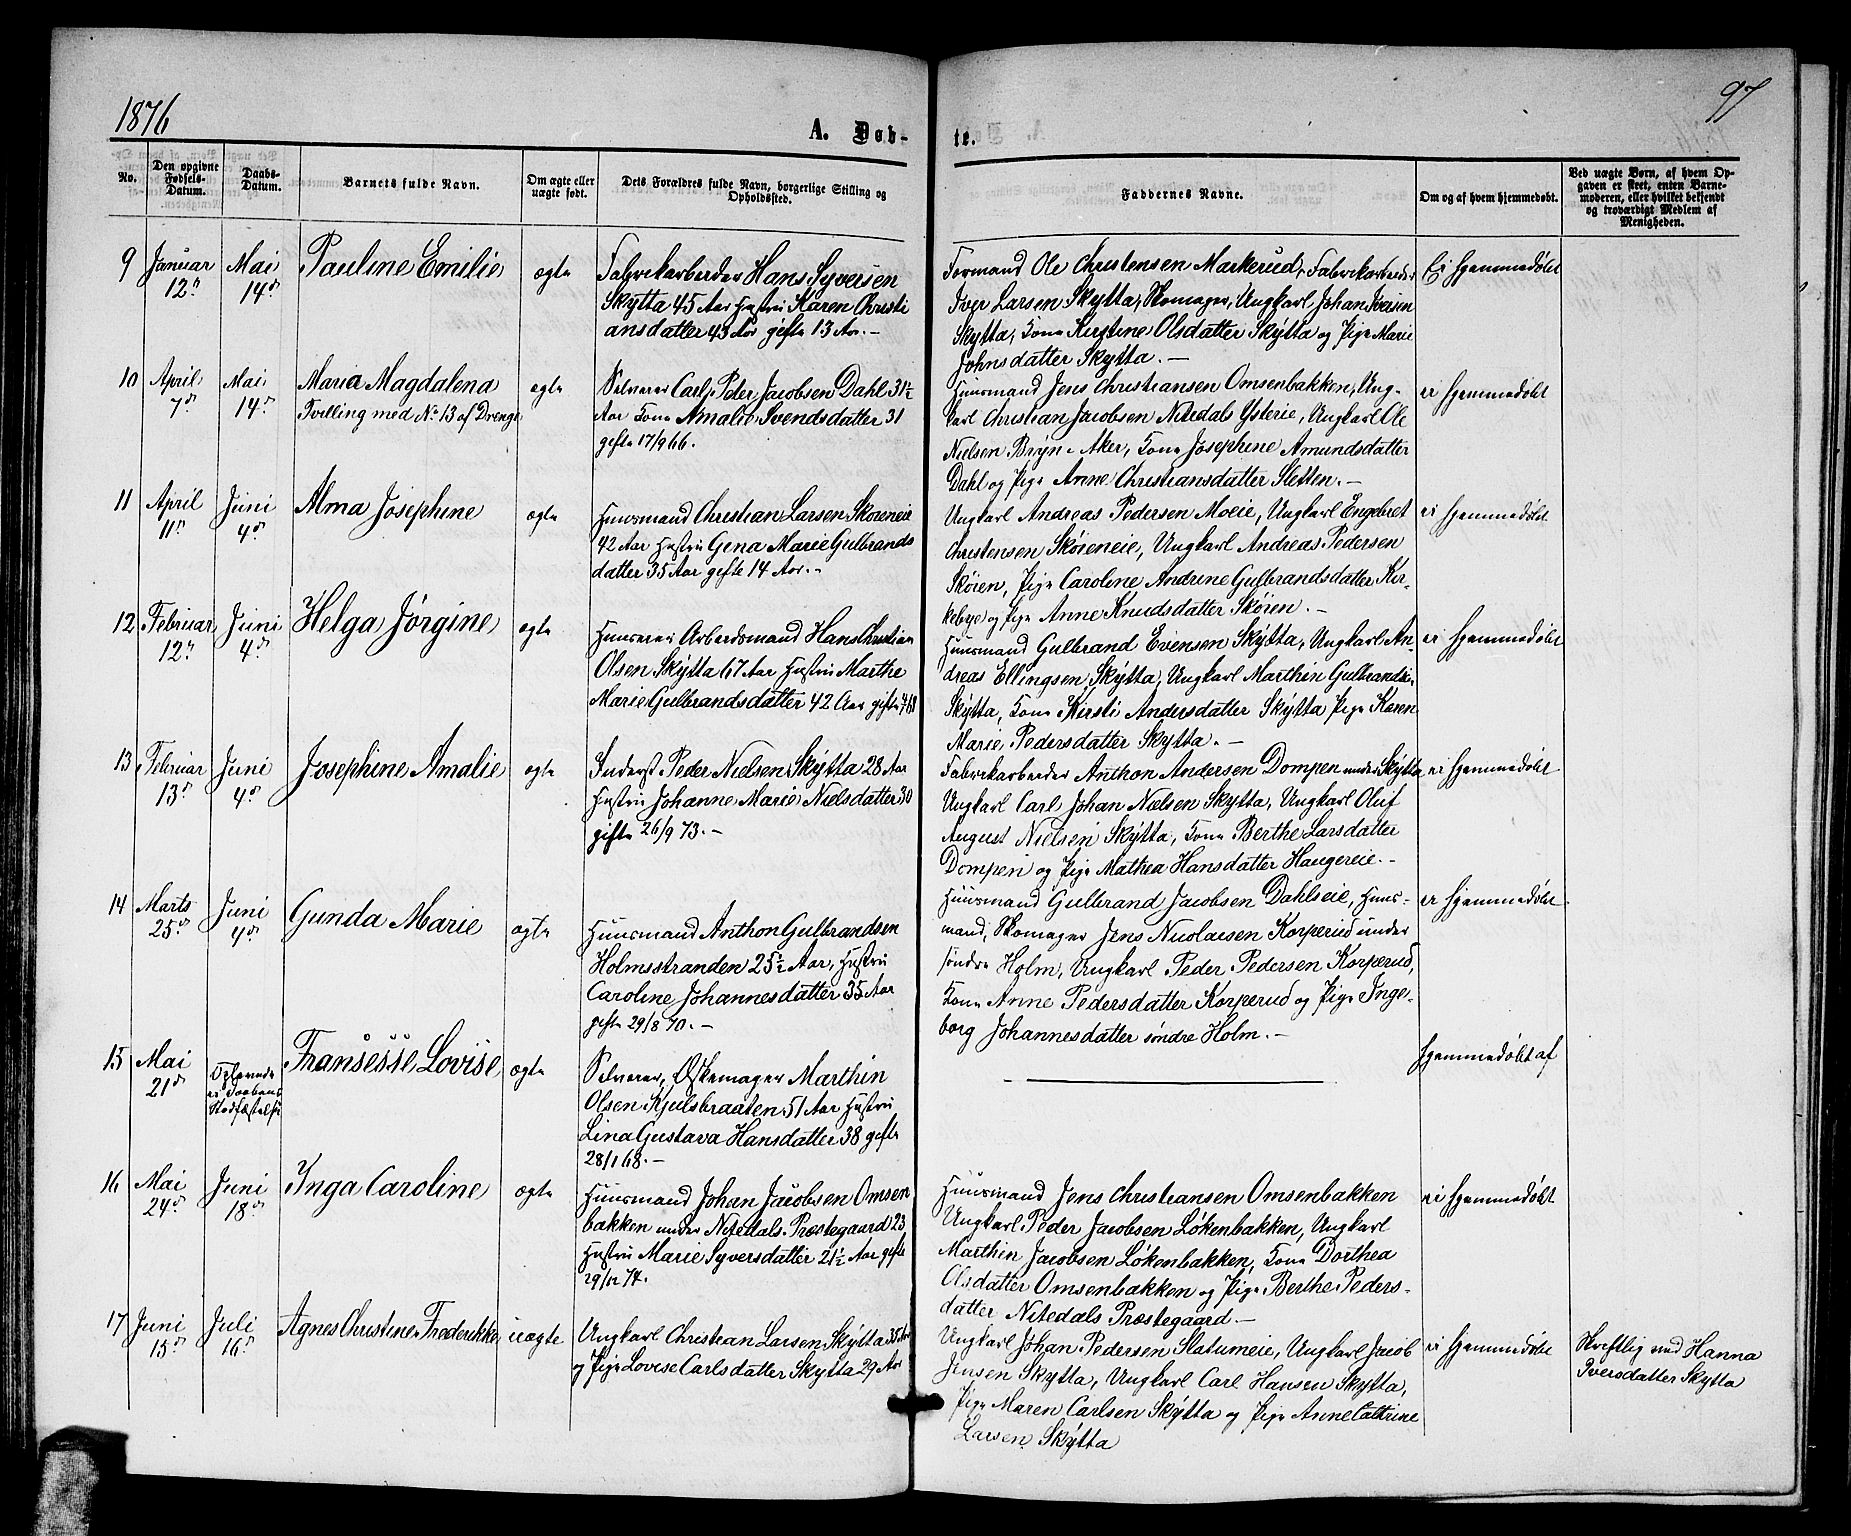 1876
97
A. Døb-
te.
No.
Den opgivne
Fødsels-
Datum.
Daabs-
Datum.
Barnets fulde Navn.
Om ægte eller
uægte født.
Dets Forældres fulde Navn, borgerlige Stilling og
Opholdssted.
Faddernes Navne.
Om og af hvem hjemmedøbt.
Ved uægte Børn, af hvem Op-
gaven er skeet, enten Barne-
moderen, eller hvilket bekjendt
og troværdigt Medlem af
Menigheden.
9
Januar
12te
Mai
14de
Pauline Emilie
ægte
Fabrikarbeider Hans Syversen
Skÿtta 45 Aar Hustru Karen Christi
ansdatter 43 Aar gifte 13 Aar.-
Formand Ole Christensen Markerud, Fabrikarbeider
Iver Larsen Skÿtta, Skomager, Ungkarl Johan Iversen
Skÿtta, Kone Kirstine Olsdatter Skÿtta og Pige Marie
Johnsdatter Skÿtta.-
Ei hjemmedøbt
10
April
7de
Mai
14de
Maria Magdalena
Tvilling med No 13 af Drenge
ægte
Selveier Carl Peder Jacobsen Dahl 31½
Aar Kone Amalie Svendsdatter 31
gifte 17/9 66.
Huusmand Jens Christiansen Omsenbakken, Ung-
karl Christian Jacobsen Nitedals Ysterie, Ungkarl Ole
Nielsen Brÿn i Aker, Kone Josephine Amundsdatter
Dahl og Pige Anne Christiansdatter Sletten.-
ei hjemmedøbt
11
April
11te
Juni
4de
Alma Josephine
ægte
Huusmand Christian Larsen Skøieneie
42 Aar Hustru Gena Marie Gulbrands
datter 35 Aar gifte 14 Aar.-
Ungkarl Andreas Pedersen Moeie, Ungkarl Engebret
Christensen Skøieneie, Ungkarl Andreas Pedersen
Skøien, Pige Caroline Andrine Gulbrandsdatter Kir-
kebye og Pige Anne Knudsdatter Skøien.-
ei hjemmedøbt
12
Februar
12te
Juni
4de
Helga Jørgine
ægte
Huuseier Arbeidsmand Hans Christian
Olsen Skÿtta 67 Aar Hustru Marthe
Marie Gulbrandsdatter 42 Aar gifte
Huusmand Gulbrand Evensen Skÿtta, Ungkarl An-
dreas Ellingsen Skÿtta, Ungkarl Marthin Gulbrands.
Skÿtta, Kone Kirsti Andersdatter Skÿtta Pige Karen
Marie Pedersdatter Skÿtta.-
ei hjemmedøbt
13
Februar
13de
Juni
4de
Josephine Amalie
ægte
Inderst Peder Nielsen Skÿtta 28 Aar
Hustru Johanne Marie Nielsdatter 30
gifte 26/9 73.-
Fabrikarbeider Anthon Andersen Dompen under Skÿtta
Ungkarl Carl Johan Nielsen Skÿtta, Ungkarl Oluf
August Nielsen Skÿtta, Kone Berthe Larsdatter
Dompen og Pige Mathea Hansdatter Haugereie.-
ei hjemmedøbt
14
Marts
25de
Juni
4de
Gunda Marie
ægte
Huusmand Anthon Gulbrandsen
Holmsstranden 25½ Aar, Hustru
Caroline Johannesdatter 35 Aar
gifte 29/8 70.-
Huusmand Gulbrand Jacobsen Dahlseie, Huus-
mand, Skomager Jens Nicolaisen Korperud under
søndre Holm, Ungkarl Peder Pedersen Korperud,
Kone Anne Pedersdatter Korperud og Pige Inge-
borg Johannesdatter søndre Holm.-
ei hjemmedøbt
15
Mai
21de
Oplevede
ei Daabens
Stadfæstelse
Fransesse Lovise
ægte
Selveier, Æskemager Marthin
Olsen Kjulsbraaten 51 Aar Hustru
Lina Gustava Hansdatter 38 gifte
28/1 68.-
hjemmedøbt af
16
Mai
24de
Juni
18de
Inga Caroline
ægte
Huusmand Johan Jacobsen Omsen
bakken under Nitedals Præstegaard 23
Hustru Marie Syversdatter 21½ Aar gifte
29/12 74.
Huusmand Jens Christiansen Omsenbakken
Ungkarl Peder Jacobsen Løkenbakken, Ungkarl
Marthin Jacobsen Løkenbakken, Kone Dorthea
Olsdatter Omsenbakken og Pige Berthe Peders-
datter Nitedals Præstegaard.-
ei hjemmedøbt
17
Juni
15de
Juli
16de
Agnes Christine Frederikke
uægte
Ungkarl Christian Larsen Skÿtta 35 Aar
og Pige Lovise Carlsdatter Skÿtta 29 Aar
Ungkarl Johan Pedersen Slatumeie, Ungkarl Jacob
Jensen Skÿtta, Ungkarl Carl Hansen Skÿtta,
Pige Maren Carlsen Skÿtta og Pige Anne Cathrine
Larsen Skÿtta
ei hjemmedøbt
Skriftlig ved Hanna
Iversdatter Skÿtta